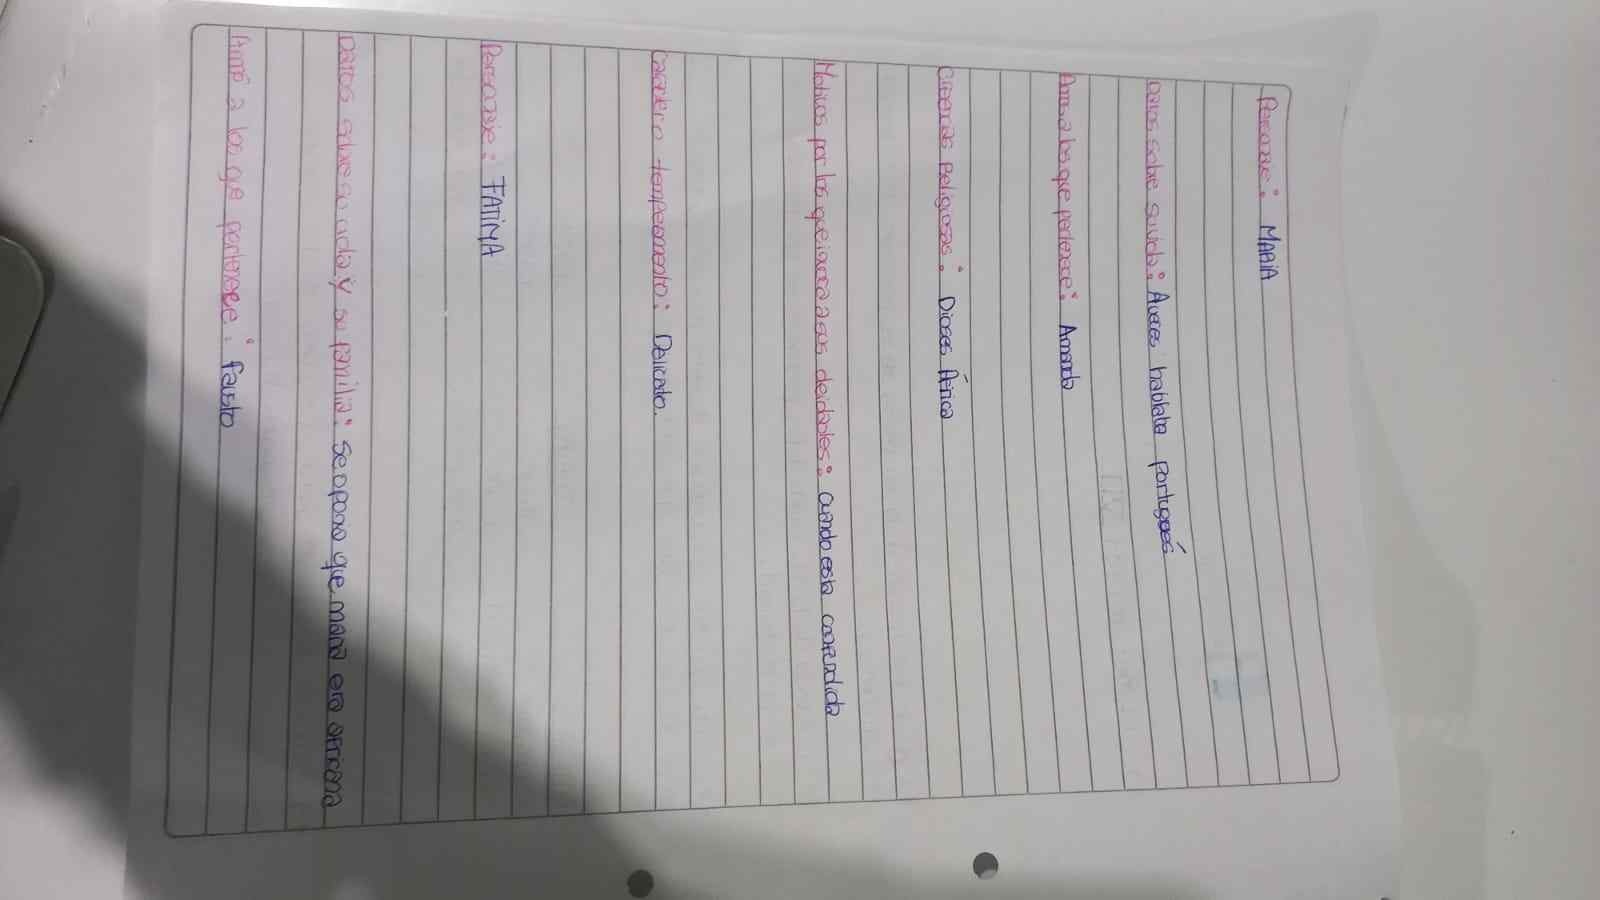 Personaje: MARIA
Datos sobre su vida: Aveces hablaba portugués
Amo a los que pertenece: Amanda
Creencias Religiosas: Dioses África
Motivos por los que invoca a sus deidables: cuando esta
Carácter o temperamento: Delicado.
Personaje: FATIMA
Datos sobre su vida y su familia: Se oponia que mama era africana
Amo a los que pertenece: fausto